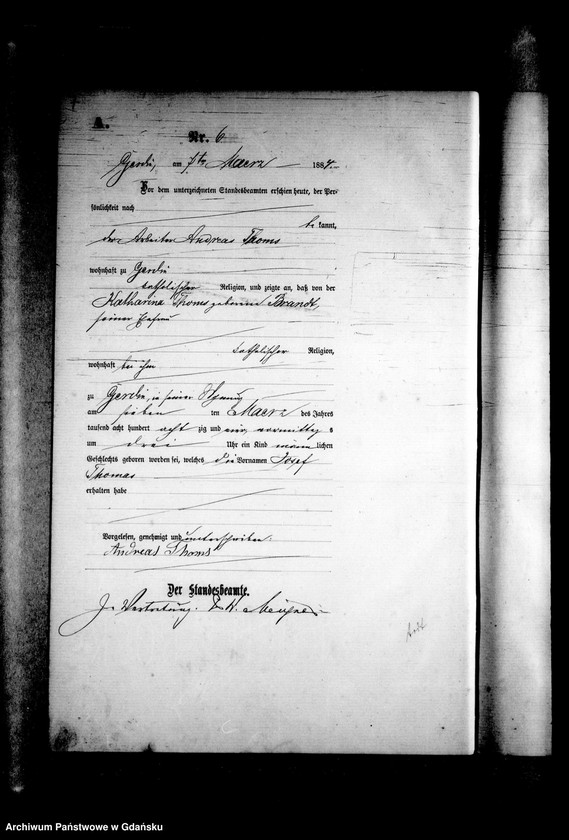 A.
Nr. 6
Gerdin, am 7ten Maerz 1884.
Vor dem unterzeichneten Standesbeamten erschien heute, der Per-
sönlichkeit nach
be kannt,
der Arbeiter Andreas Thoms
wohnhaft zu Gerdin
katholischer Religion, und zeigte an, daß von der
Katharina Thoms geborene Brandt,
seiner Ehefrau
katholischer Religion,
wohnhaft bei ihm
zu Gerdin, in seiner Wohnung
am sieben ten Maerz des Jahres
tausend acht hundert acht zig und vier vormittags
um drei Uhr ein Kind männ lichen
Geschlechts geboren worden sei, welches die Vornamen Josef
Thomas
erhalten habe
Vorgelesen, genehmigt und unterschrieben.
Andreas Thoms
Der Standesbeamte.
In Vertretung.
Archiwum Państwowe w Gdańsku